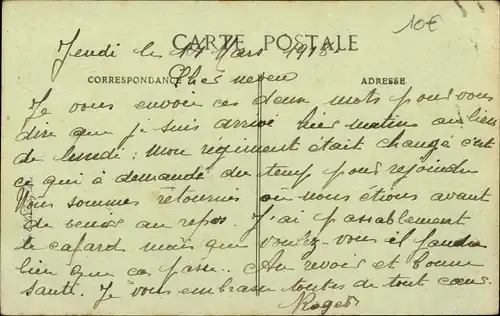 10€
CARTE POSTALE
Jeudi le 14 Mars 1918
CORRESPONDANCE
ADRESSE
Cher neveu
Je vous envoie ces deux mots pour vous
dire que je suis arrivé hier matin au lieu
de lundi : mon regiment était changé c'est
ce qui à demandé du temp pour rejoindre
Nous sommes retournés où nous étions avant
de venir au repos. J'ai passablement
le cafard mais que voulez-vous il faudra
bien que ça passe.. Au revoir et bonne
santé. Je vous embrasse toutes de tout cœur.
Roger